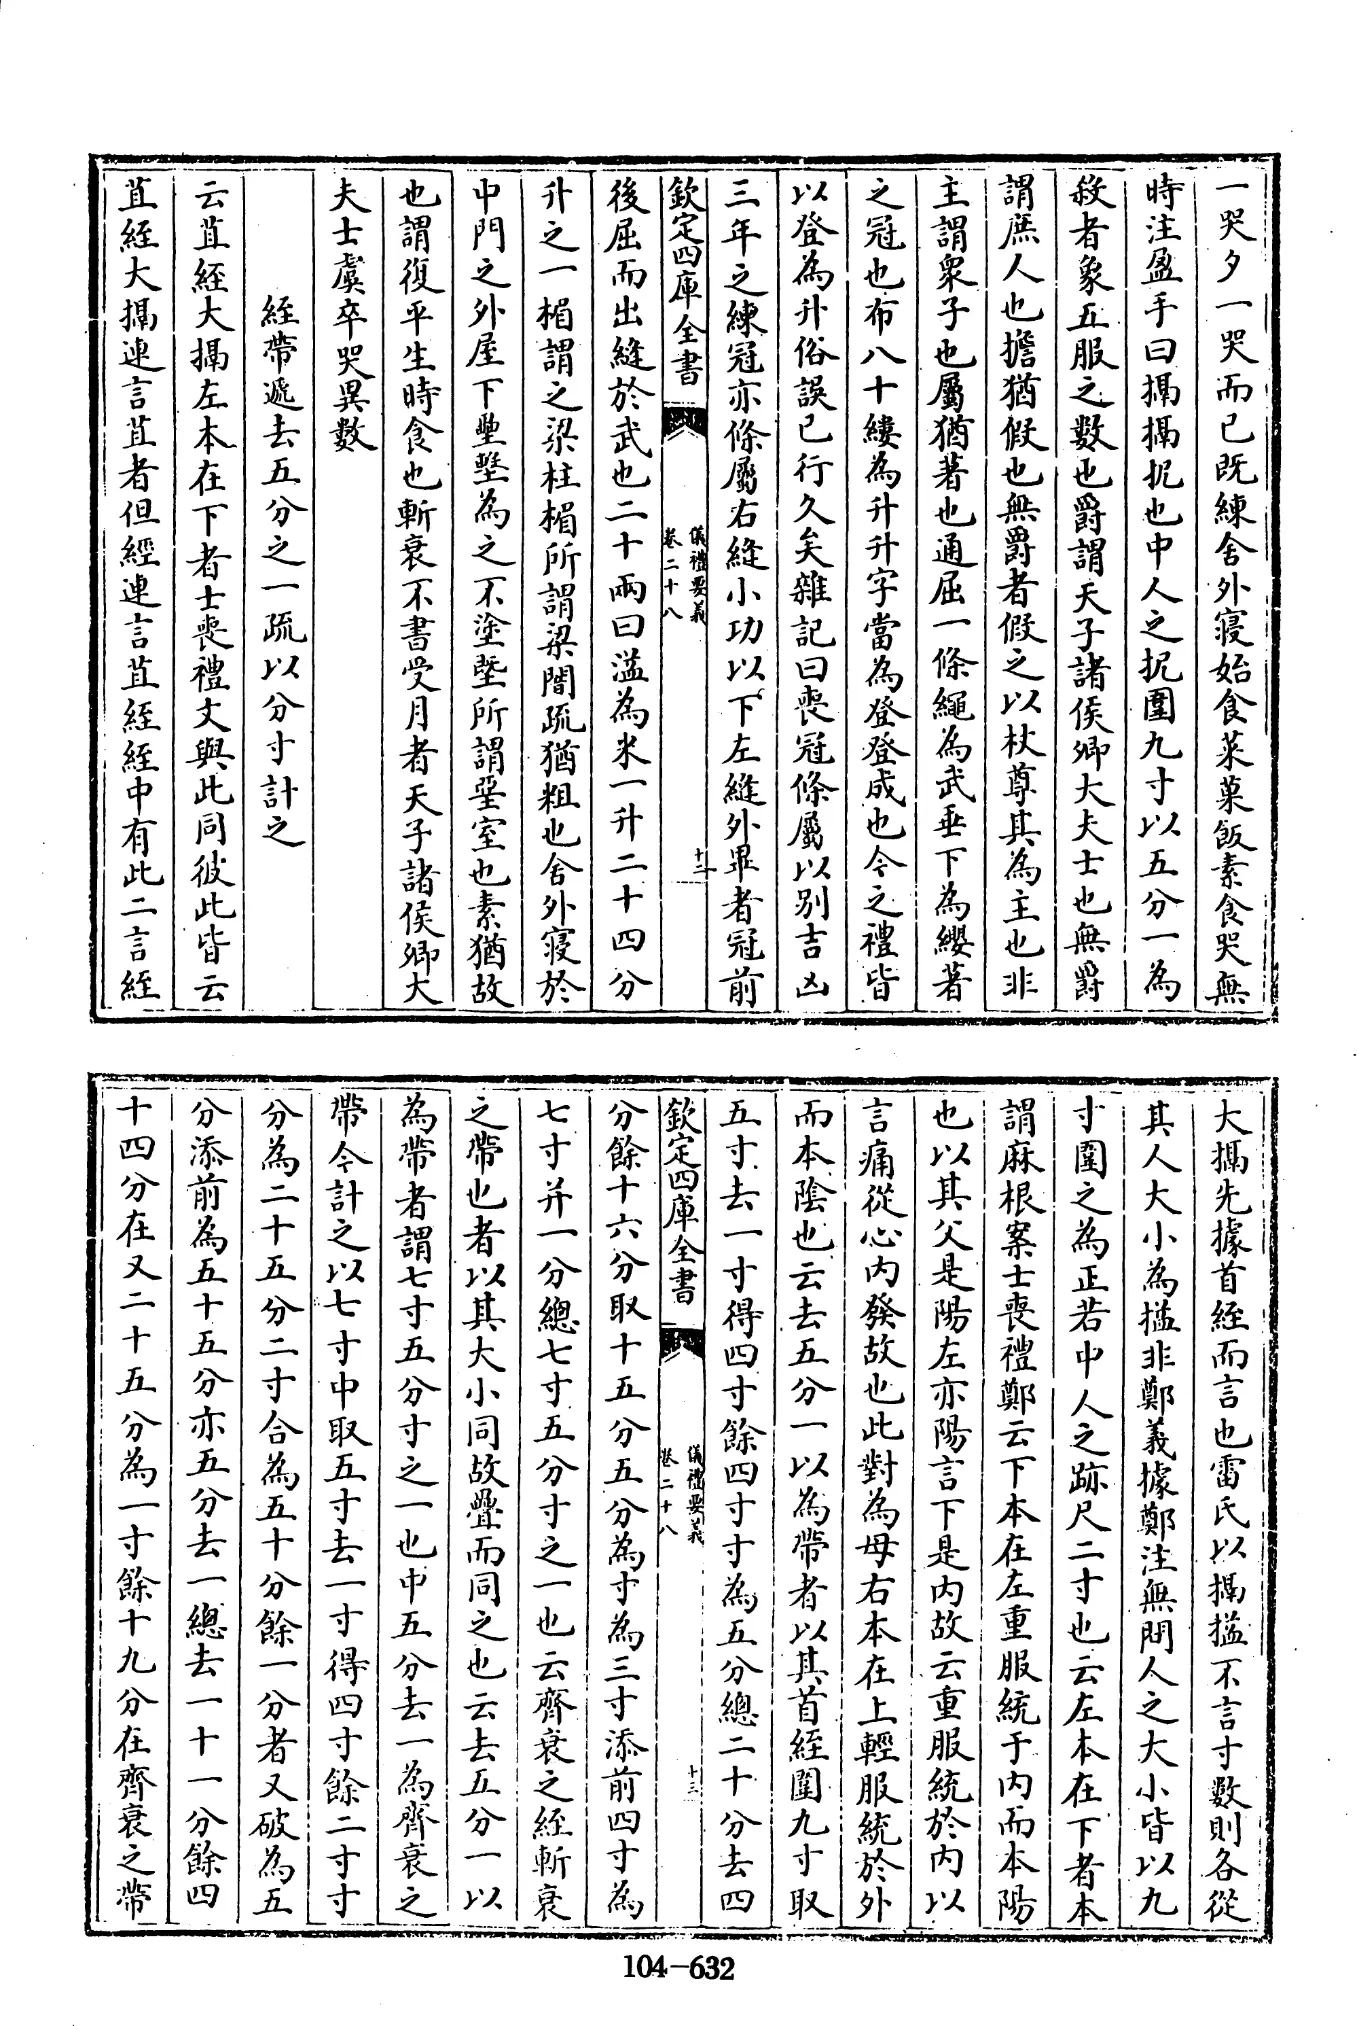 一哭夕一哭而已既練舍外寢始食菜菓飯素食哭無
時注盈手曰搹搹扼也中人之扼圍九寸以五分一為
殺者象五服之數也爵謂天子諸侯卿大夫士也無爵
謂庶人也擔猶假也無爵者假之以杖尊其為主也非
主謂衆子也屬猶著也通屈一條繩為武垂下為纓著
之冠也布八十縷為升升字當為登登成也今之禮皆
以登為升俗誤已行久矣雜記曰喪冠條屬以别吉凶
三年之練冠亦條屬右縫小功以下左縫外畢者冠前
欽定四庫全書
儀禮要義
卷二十八
十二
後屈而出縫於武也二十兩曰溢為米一升二十四分
升之一楣謂之梁柱楣所謂梁闇疏猶粗也舍外寢於
中門之外屋下壘墼為之不塗塈所謂堊室也素猶故
也謂復平生時食也斬衰不書受月者天子諸侯卿大
夫士虞卒哭異數
絰帶遞去五分之一疏以分寸計之
云苴絰大搹左本在下者士喪禮文與此同彼此皆云
苴絰大搹連言苴者但經連言苴絰絰中有此二言絰
大搹先據首絰而言也雷氏以搹搤不言寸數則各從
其人大小為搤非鄭義據鄭注無問人之大小皆以九
寸圍之為正若中人之跡尺二寸也云左本在下者本
謂麻根案士喪禮鄭云下本在左重服統于内而本陽
也以其父是陽左亦陽言下是内故云重服統於内以
言痛從心内發故也此對為母右本在上輕服統於外
而本陰也云去五分一以為帶者以其首絰圍九寸取
五寸去一寸得四寸餘四寸寸為五分總二十分去四
欽定四庫全書
儀禮要義
卷二十八
十三
分餘十六分取十五分五分為寸為三寸添前四寸為
七寸并一分總七寸五分寸之一也云齊衰之絰斬衰
之帶也者以其大小同故疊而同之也云去五分一以
為帶者謂七寸五分寸之一也中五分去一為齊衰之
帶今計之以七寸中取五寸去一寸得四寸餘二寸寸
分為二十五分二寸合為五十分餘一分者又破為五
分添前為五十五分亦五分去一總去一十一分餘四
十四分在又二十五分為一寸餘十九分在齊衰之帶
104-632